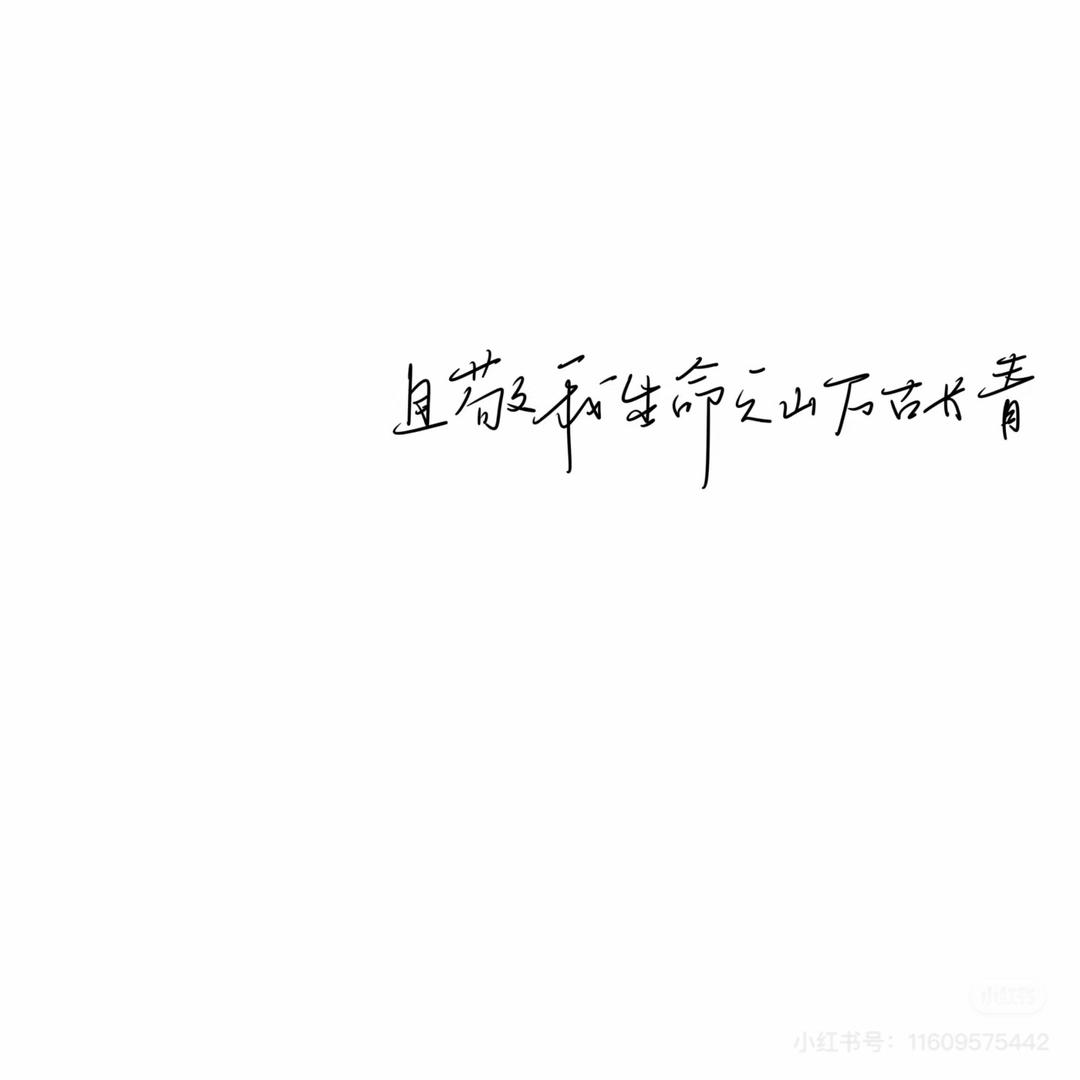 且敬我生命之山万古长青
小红书
小红书号：11609575442